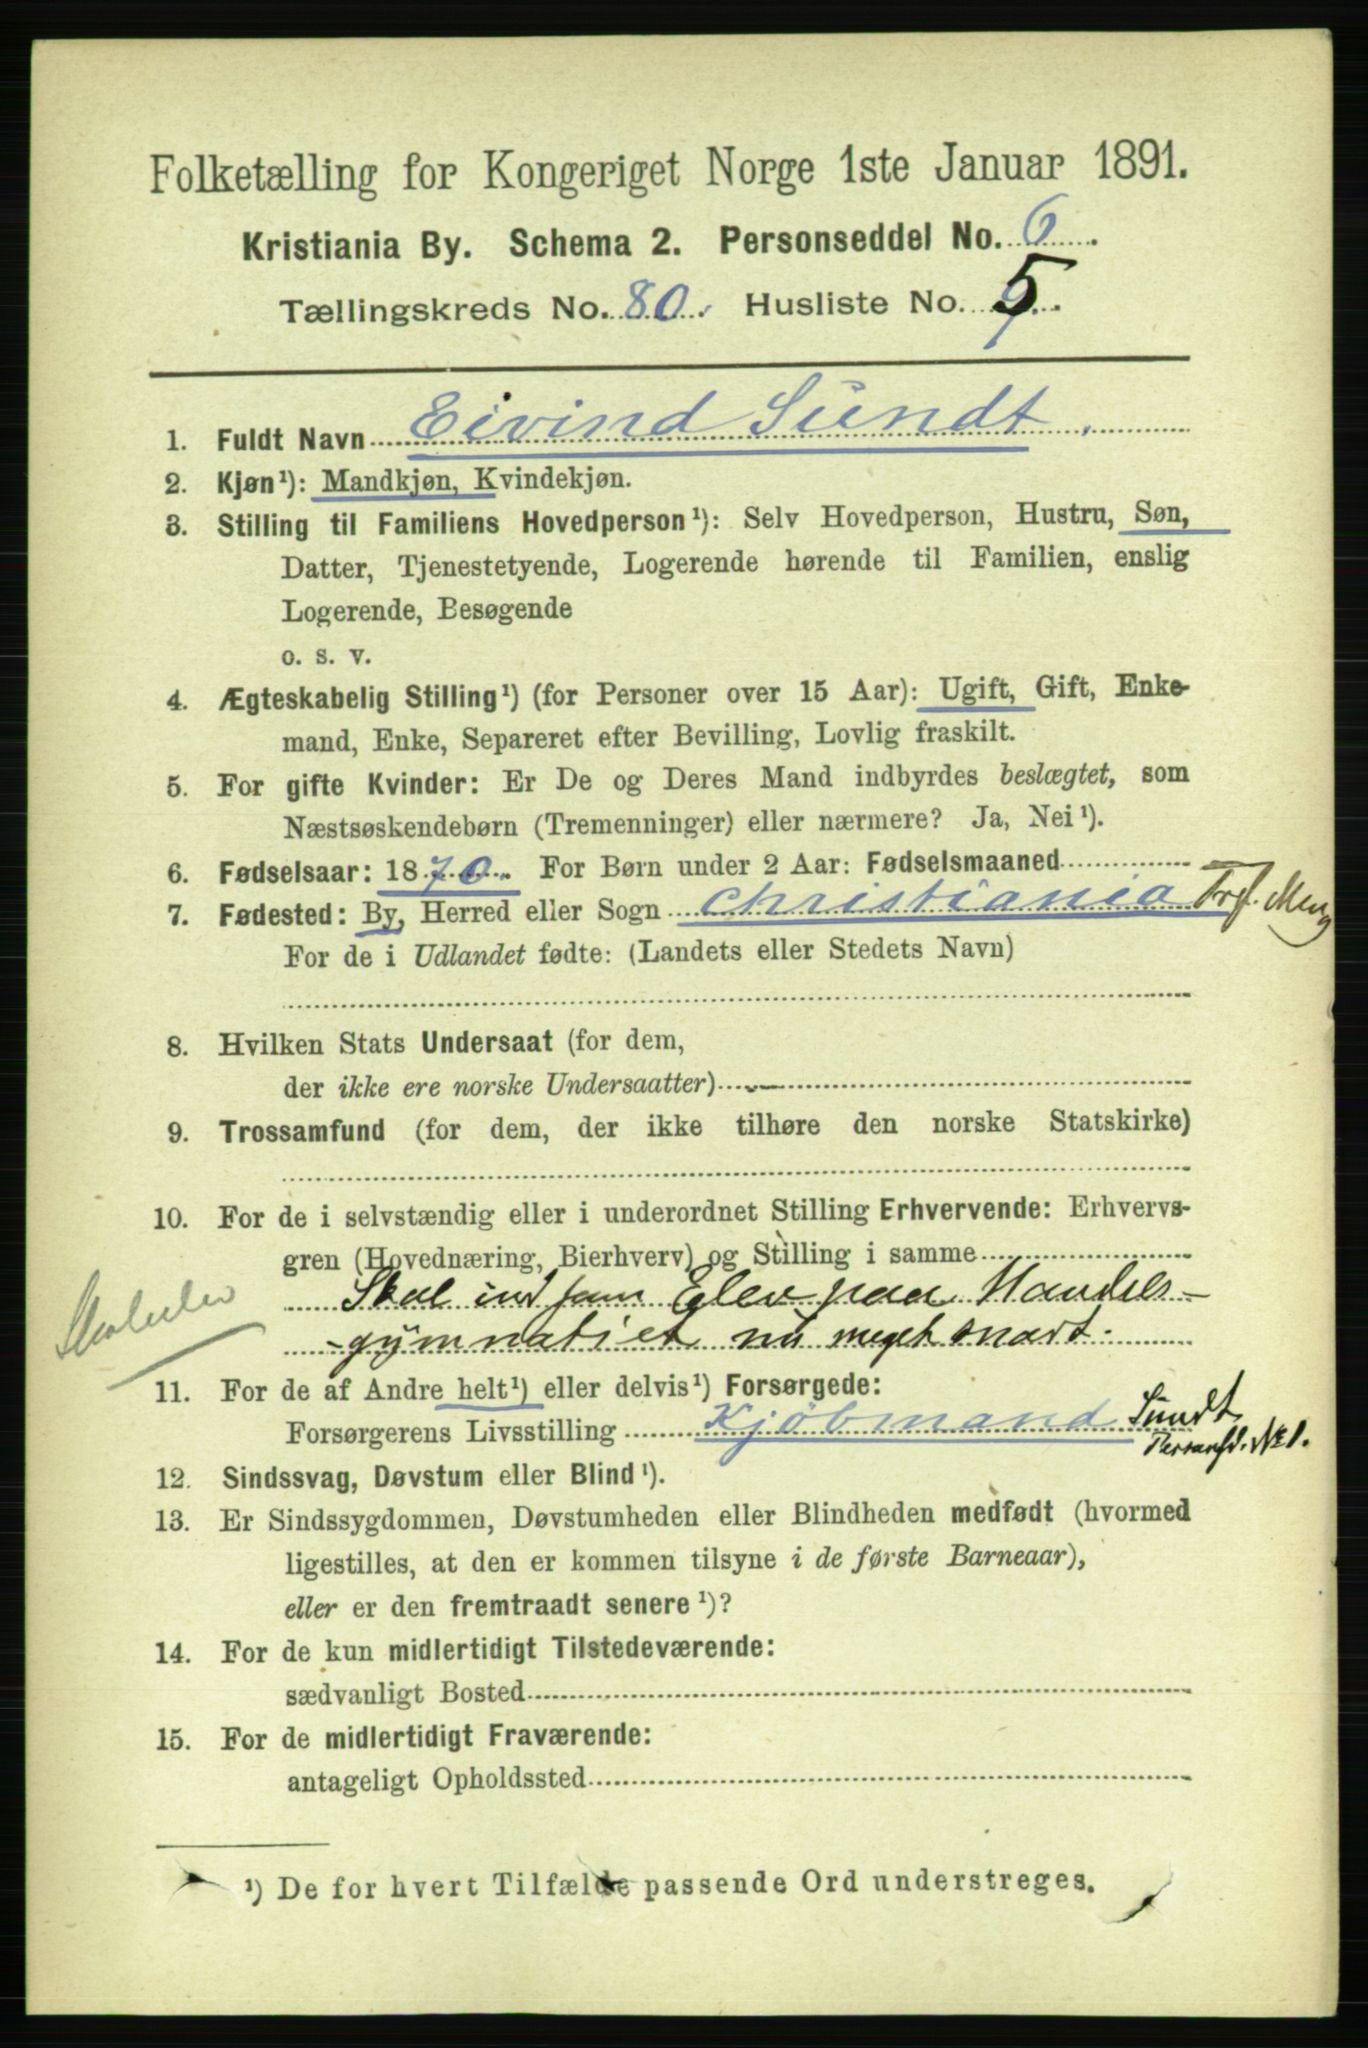 Folketælling for Kongeriget Norge 1ste Januar 1891.
Kristiania By. Schema 2. Personseddel No. 6.
Tællingskreds No. 80. Husliste No. 5.
1. Fuldt Navn Eivind Sundt.
2. Kjøn¹): Mandkjøn, Kvindekjøn.
3. Stilling til Familiens Hovedperson¹): Selv Hovedperson, Hustru, Søn,
Datter, Tjenestetyende, Logerende hørende til Familien, enslig
Logerende, Besøgende
o. s. v.
4. Ægteskabelig Stilling¹) (for Personer over 15 Aar): Ugift, Gift, Enke-
mand, Enke, Separeret efter Bevilling, Lovlig fraskilt.
5. For gifte Kvinder: Er De og Deres Mand indbyrdes beslægtet, som
Næstsøskendebørn (Tremenninger) eller nærmere? Ja, Nei¹).
6. Fødselsaar: 1870. For Børn under 2 Aar: Fødselsmaaned
7. Fødested: By, Herred eller Sogn Christiania Trf. Meng
For de i Udlandet fødte: (Landets eller Stedets Navn)
8. Hvilken Stats Undersaat (for dem,
der ikke ere norske Undersaatter)
9. Trossamfund (for dem, der ikke tilhøre den norske Statskirke)
10. For de i selvstændig eller i underordnet Stilling Erhvervende: Erhvervs-
gren (Hovednæring, Bierhverv) og Stilling i samme
Skal ind som Elev paa Handels-
-gymnatiet nu meget snart.
Skoleelev
11. For de af Andre helt¹) eller delvis¹) Forsørgede:
Forsørgerens Livsstilling Kjöbmand Sundt
Personsd. No 1.
12. Sindssvag, Døvstum eller Blind¹).
13. Er Sindssygdommen, Døvstumheden eller Blindheden medfødt (hvormed
ligestilles, at den er kommen tilsyne i de første Barneaar),
eller er den fremtraadt senere¹)?
14. For de kun midlertidigt Tilstedeværende:
sædvanligt Bosted
15. For de midlertidigt Fraværende:
antageligt Opholdssted
¹) De for hvert Tilfælde passende Ord understreges.